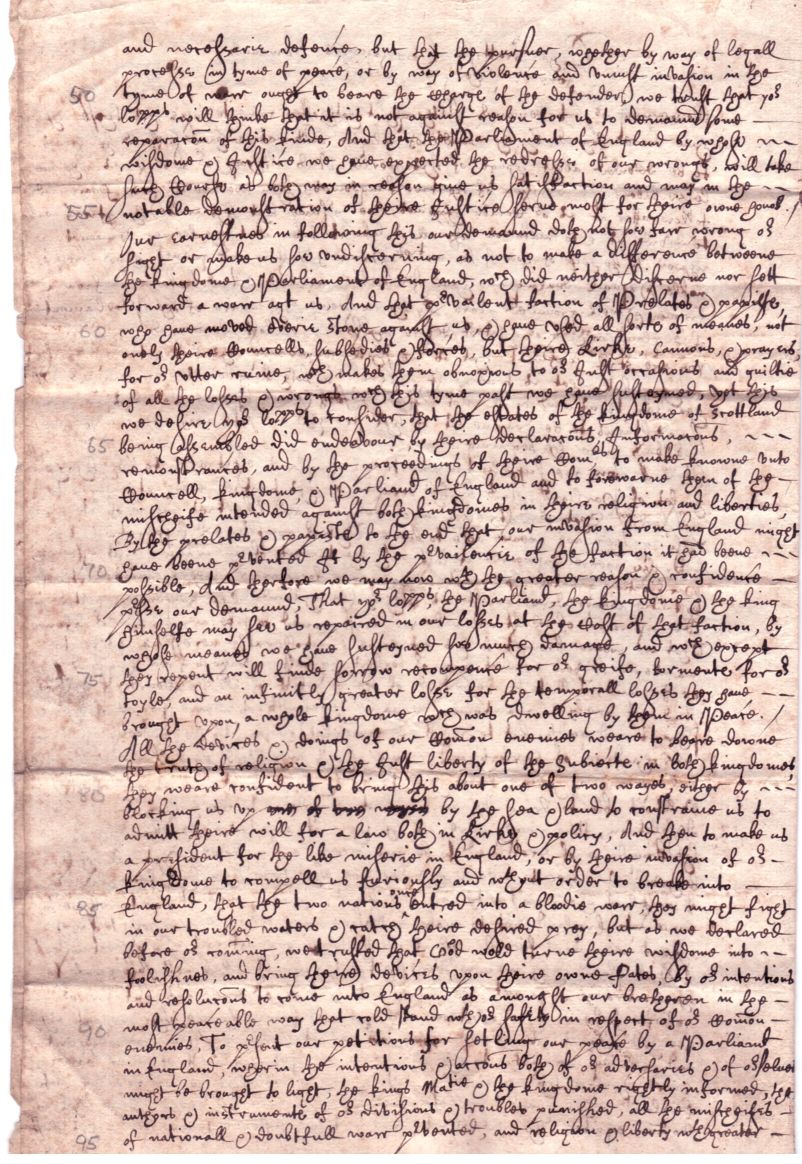 and necessarie defence, but that the pursuer, whether by way of legall
processe in tyme of peace, or by way of violence and unjust invasion in the
50 tyme of warr ought to beare the charge of the defender, we trust that yor
lopps will thinke that it is not against reason for us to demaund some
reparacon of this kinde, And that the Parliament of England by whose
wisdome & Justice we have expected the redresse of our wrongs, will take
such Course as both may in reason give us satisfaction and may in the
55 notable demonstration of theire Justice serve most for theire owne honor./
Our earnestnes in following this our demaund doth not soe farr wrong or
sight or make us soe undiscerning, as not to make a difference betweene
the kingdome & Parliament of England, wch did neither discerne nor sett
forward a warr agt us, And that prvalent faction of Prelates & papists,
60 who have moved everie stone against us, & have used all sorts of meanes, not
onely theire Councells, subsedies & forces, but theire kirke, Cannons, & prayers,
for or utter ruine, wch makes them obnoxious to or just occasions and guiltie
of all the losses & wrongs wch this tyme past we have susteyned, yet this
we desire yor lopps to consider, that the estates of the kingdome of Scottland
65 being assembled did endeavour by theire declaracons, Informacons,
remonstrances, and by the proceedings of theire Comrs to make knowne unto
Councell, kingdome, & Parliamt of England and to forewarne them of the
mischeife intended against both kingdomes in theire religion and liberties,
By the prelates & papists to the end that our invasion from England might
70 have beene prvented if by the prvailencie of the faction it had beene
possible, And therfore we may now wth the greater reason & confidence
prsse our demaund, That yor lopps, the Parliamt, the kingdome & the king
himselfe may see us repaired in our losses at the Cost of that faction, by
whose meanes we have susteyned soe much damage, and wch except
75 they repent will finde sorrow recompence for or greife, torments for or
toyle, and an infinitly greater losse for the temporall losses they have
brought upon, a whole kingdome wch was dwelling by them in Peace./
All the devices & doings of our Comon enemies weare to beare downe
the truth of religion & the just liberty of the Subiecte in both kingdomes,
80 they weare confident to bring this about one of two wayes, either by
blocking us up by the sea & land to constraine us to
admitt theire will for a law both in kirke & policy, And then to make us
a president for the like miserie in England, or by theire invasion of or
kingdome to compell us furiously and wthout order to breake into
85 England, that the two nations once entred into a bloodie warr, they might fight
in our troubled waters & catch theire desired prey, but as we declared
before or coming, we trusted that God wold turne theire wisdome into
foolishnes, and bring theire devices upon theire owne Pates, by or intentions
and resolucons to come into England as amongst our bretheren in the
90 most peaceable way that cold stand wth or safety in respect of or Comon
enemies, To prsent our petitions for setling our peace by a Parliamt
in England, wherin the intentions & accons both of or adversaries & of orselves
might be brought to light, the kings Matie & the kingdome rightly informed, the
authors & instruments of or divisions & troubles punished, all the mischeifes
95 of nationall & doubtfull warr prvented, and religion & liberty wth greater